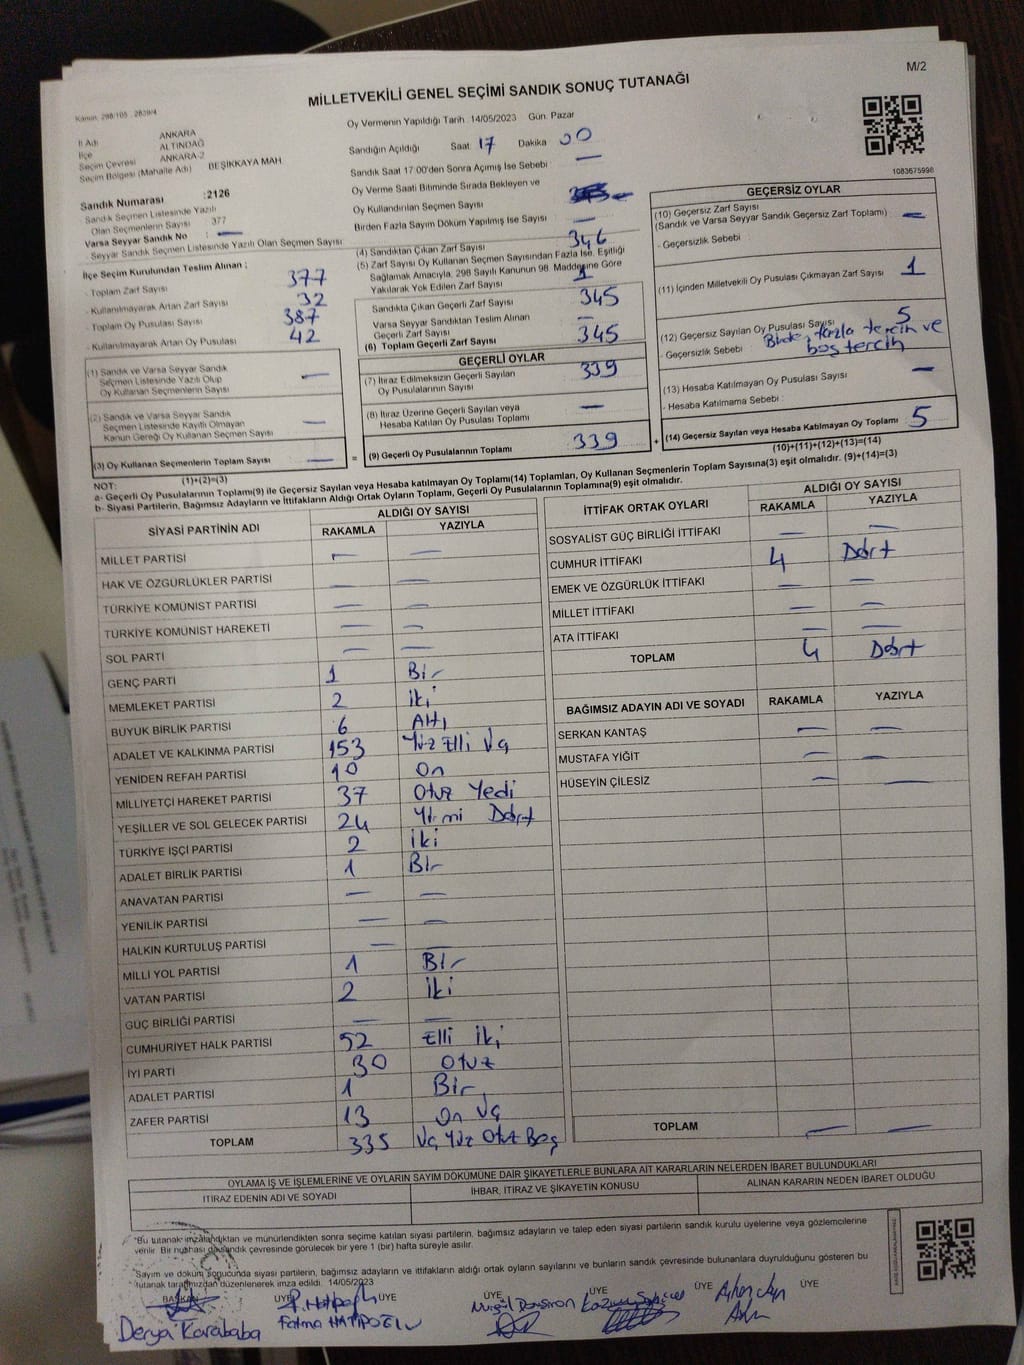 M/2
MİLLETVEKİLİ GENEL SEÇİMİ SANDIK SONUÇ TUTANAĞI
Kanun: 298/105 - 2839/4
İl Adı ANKARA
İlçe ALTINDAĞ
Seçim Çevresi ANKARA-2
Seçim Bölgesi (Mahalle Adı) BEŞİKKAYA MAH
Sandık Numarası :2126
Sandık Seçmen Listesinde Yazılı
Olan Seçmenlerin Sayısı 377
Varsa Seyyar Sandık No : —
- Seyyar Sandık Seçmen Listesinde Yazılı Olan Seçmen Sayısı
İlçe Seçim Kurulundan Teslim Alınan ;
- Toplam Zarf Sayısı 377
- Kullanılmayarak Artan Zarf Sayısı 32
- Toplam Oy Pusulası Sayısı 387
- Kullanılmayarak Artan Oy Pusulası 42
(1) Sandık ve Varsa Seyyar Sandık
Seçmen Listesinde Yazılı Olup
Oy Kullanan Seçmenlerin Sayısı —
(2) Sandık ve Varsa Seyyar Sandık
Seçmen Listesinde Kayıtlı Olmayan
Kanun Gereği Oy Kullanan Seçmen Sayısı —
(3) Oy Kullanan Seçmenlerin Toplam Sayısı —
(1)+(2)=(3)
Oy Vermenin Yapıldığı Tarih 14/05/2023 Gün: Pazar
Sandığın Açıldığı Saat 17 Dakika 00
Sandık Saat 17:00'den Sonra Açımış İse Sebebi : —
Oy Verme Saati Bitiminde Sırada Bekleyen ve
Oy Kullandırılan Seçmen Sayısı —
Birden Fazla Sayım Döküm Yapılmış İse Sayısı —
(4) Sandıktan Çıkan Zarf Sayısı 346
(5) Zarf Sayısı Oy Kullanan Seçmen Sayısından Fazla İse, Eşitliği
Sağlamak Amacıyla, 298 Sayılı Kanunun 98. Maddesine Göre
Yakılarak Yok Edilen Zarf Sayısı 1
Sandıkta Çıkan Geçerli Zarf Sayısı 345
Varsa Seyyar Sandıktan Teslim Alınan
Geçerli Zarf Sayısı —
(6) Toplam Geçerli Zarf Sayısı 345
GEÇERLİ OYLAR
(7) İtiraz Edilmeksizin Geçerli Sayılan
Oy Pusulalarının Sayısı 339
(8) İtiraz Üzerine Geçerli Sayılan veya
Hesaba Katılan Oy Pusulası Toplamı —
= (9) Geçerli Oy Pusulalarının Toplamı 339 +
1083675996
GEÇERSİZ OYLAR
(10) Geçersiz Zarf Sayısı
(Sandık ve Varsa Seyyar Sandık Geçersiz Zarf Toplamı) : —
- Geçersizlik Sebebi :
(11) İçinden Milletvekili Oy Pusulası Çıkmayan Zarf Sayısı 1
(12) Geçersiz Sayılan Oy Pusulası Sayısı 5
- Geçersizlik Sebebi fazla tercih ve
boş tercih
(13) Hesaba Katılmayan Oy Pusulası Sayısı —
- Hesaba Katılmama Sebebi :
(14) Geçersiz Sayılan veya Hesaba Katılmayan Oy Toplamı 5
(10)+(11)+(12)+(13)=(14)
NOT:
a- Geçerli Oy Pusulalarının Toplamı(9) ile Geçersiz Sayılan veya Hesaba katılmayan Oy Toplamı(14) Toplamları, Oy Kullanan Seçmenlerin Toplam Sayısına(3) eşit olmalıdır. (9)+(14)=(3)
b- Siyasi Partilerin, Bağımsız Adayların ve İttifakların Aldığı Ortak Oyların Toplamı, Geçerli Oy Pusulalarının Toplamına(9) eşit olmalıdır.
SİYASİ PARTİNİN ADI ALDIĞI OY SAYISI
RAKAMLA YAZIYLA
MİLLET PARTİSİ — —
HAK VE ÖZGÜRLÜKLER PARTİSİ — —
TÜRKİYE KOMÜNİST PARTİSİ — —
TÜRKİYE KOMÜNİST HAREKETİ — —
SOL PARTİ — —
GENÇ PARTİ 1 Bir
MEMLEKET PARTİSİ 2 iki
BÜYÜK BİRLİK PARTİSİ 6 Altı
ADALET VE KALKINMA PARTİSİ 153 Yüz Elli Üç
YENİDEN REFAH PARTİSİ 10 On
MİLLİYETÇİ HAREKET PARTİSİ 37 Otuz Yedi
YEŞİLLER VE SOL GELECEK PARTİSİ 24 Yirmi Dört
TÜRKİYE İŞÇİ PARTİSİ 2 iki
ADALET BİRLİK PARTİSİ 1 Bir
ANAVATAN PARTİSİ — —
YENİLİK PARTİSİ — —
HALKIN KURTULUŞ PARTİSİ — —
MİLLİ YOL PARTİSİ 1 Bir
VATAN PARTİSİ 2 iki
GÜÇ BİRLİĞİ PARTİSİ — —
CUMHURİYET HALK PARTİSİ 52 Elli iki
İYİ PARTİ 30 Otuz
ADALET PARTİSİ 1 Bir
ZAFER PARTİSİ 13 On Üç
TOPLAM 335 Üç Yüz Otuz Beş
İTTİFAK ORTAK OYLARI ALDIĞI OY SAYISI
RAKAMLA YAZIYLA
SOSYALİST GÜÇ BİRLİĞİ İTTİFAKI — —
CUMHUR İTTİFAKI 4 Dört
EMEK VE ÖZGÜRLÜK İTTİFAKI — —
MİLLET İTTİFAKI — —
ATA İTTİFAKI — —
TOPLAM 4 Dört
BAĞIMSIZ ADAYIN ADI VE SOYADI RAKAMLA YAZIYLA
SERKAN KANTAŞ — —
MUSTAFA YİĞİT — —
HÜSEYİN ÇİLESİZ — —
TOPLAM — —
OYLAMA İŞ VE İŞLEMLERİNE VE OYLARIN SAYIM DÖKÜMÜNE DAİR ŞİKAYETLERLE BUNLARA AİT KARARLARIN NELERDEN İBARET BULUNDUKLARI
İTİRAZ EDENİN ADI VE SOYADI İHBAR, İTİRAZ VE ŞİKAYETİN KONUSU ALINAN KARARIN NEDEN İBARET OLDUĞU
"Bu tutanak imzalandıktan ve mühürlendikten sonra seçime katılan siyasi partilerin, bağımsız adayların ve talep eden siyasi partilerin sandık kurulu üyelerine veya gözlemcilerine
verilir. Bir nüshası da sandık çevresinde görülecek bir yere 1 (bir) hafta süreyle asılır.
Sayım ve döküm sonucunda siyasi partilerin, bağımsız adayların ve ittifakların aldığı ortak oyların sayılarını ve bunların sandık çevresinde bulunanlara duyrulduğunu gösteren bu
tutanak tarafımızdan düzenlenerek imza edildi. 14/05/2023
BAŞKAN ÜYE ÜYE ÜYE ÜYE ÜYE ÜYE
Derya Karababa Fatma HATİPOĞLU